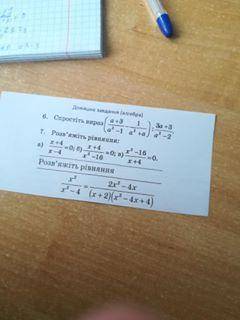 Домашнє завдання (алгебра)
6. Спростіть вираз (a+3/a²-1 - 1/a²+a) : 3a+3/a²-2
7. Розв'яжіть рівняння:
а) x+4/x-4=0; б) x+4/x²-16=0; в) x²-16/x+4=0.
Розв'яжіть рівняння
x²/x²-4 = 2x²-4x/(x+2)(x²-4x+4)